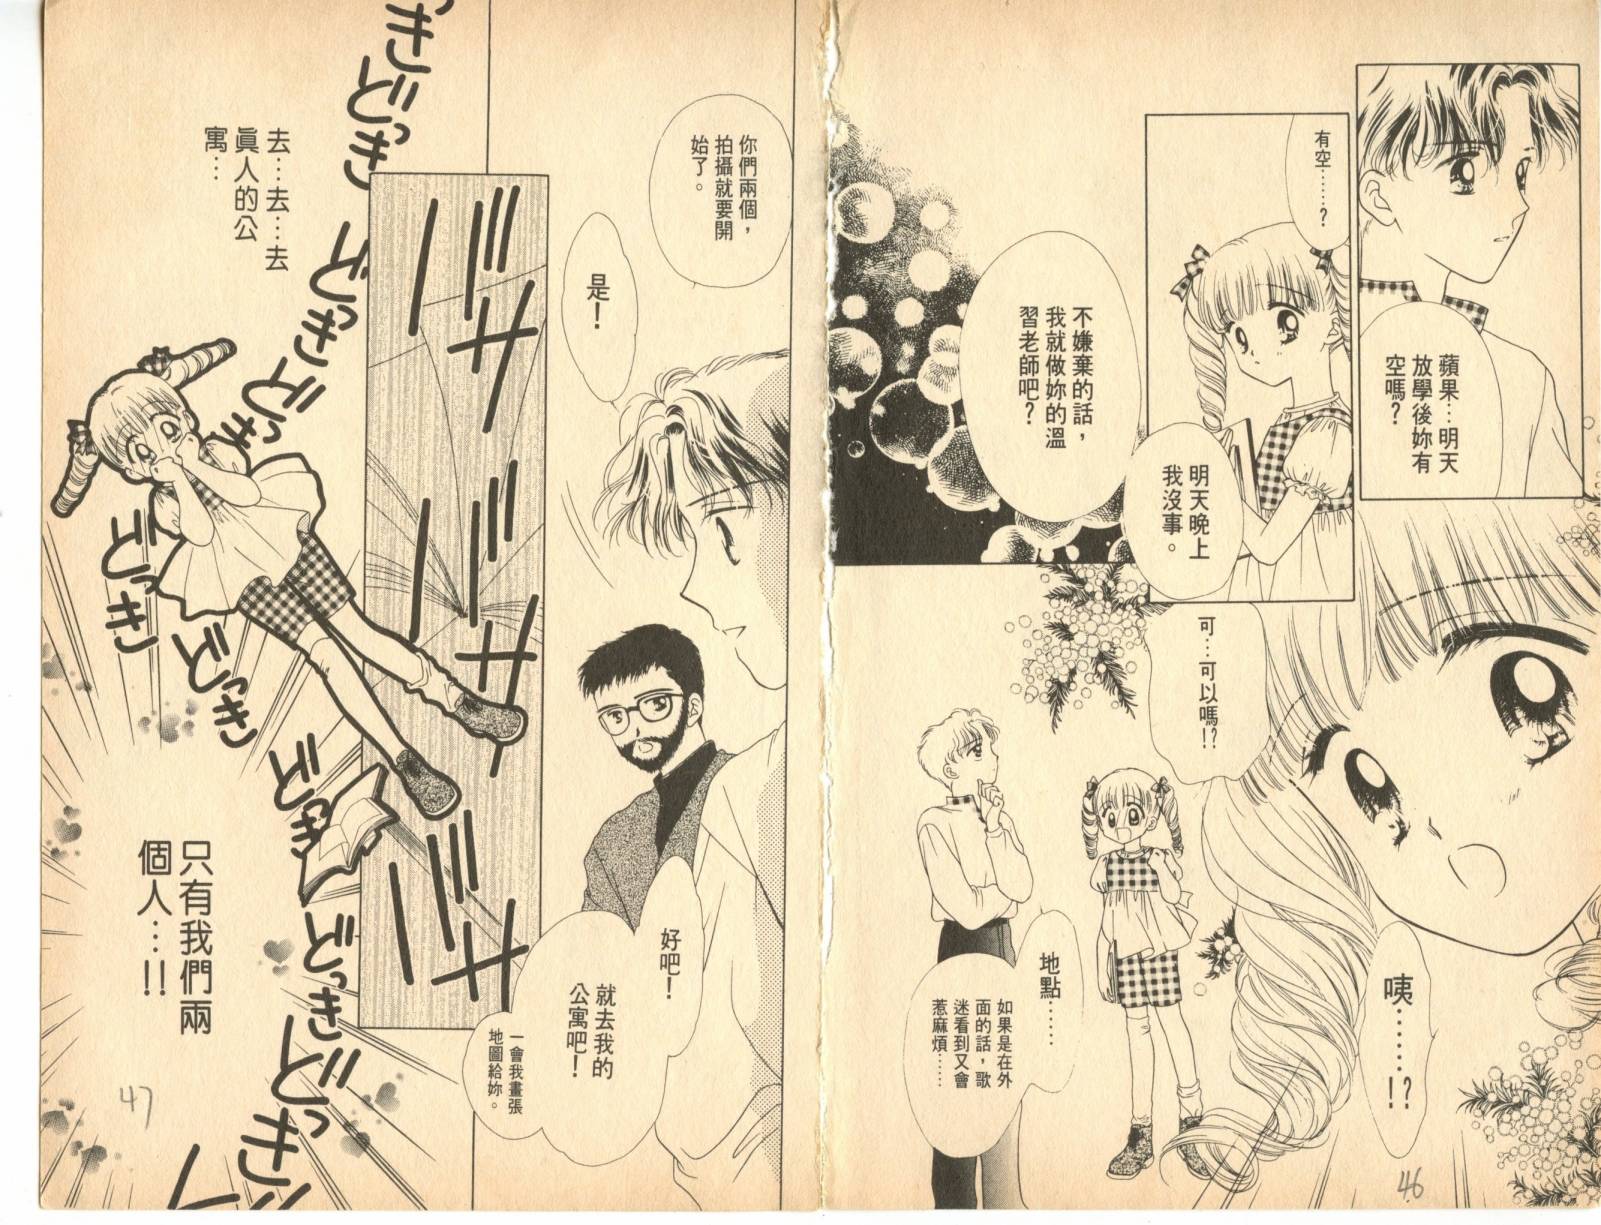 蘋果…明天
放學後妳有
空嗎?
有空……?
明天晚上
我沒事。
不嫌棄的話,
我就做妳的溫
習老師吧?
咦……!?
可…可以嗎!?
地點……
如果是在外
面的話,歌
迷看到又會
惹麻煩……
46
你們兩個,
拍攝就要開
始了。
是!
好吧!
就去我的
公寓吧!
一會我畫張
地圖給妳。
ザザザ
どっきどっきどっきどっき
どっきどっきどっきどっきどっき
去…去…去
眞人的公
寓…
只有我們兩
個人…!!
47